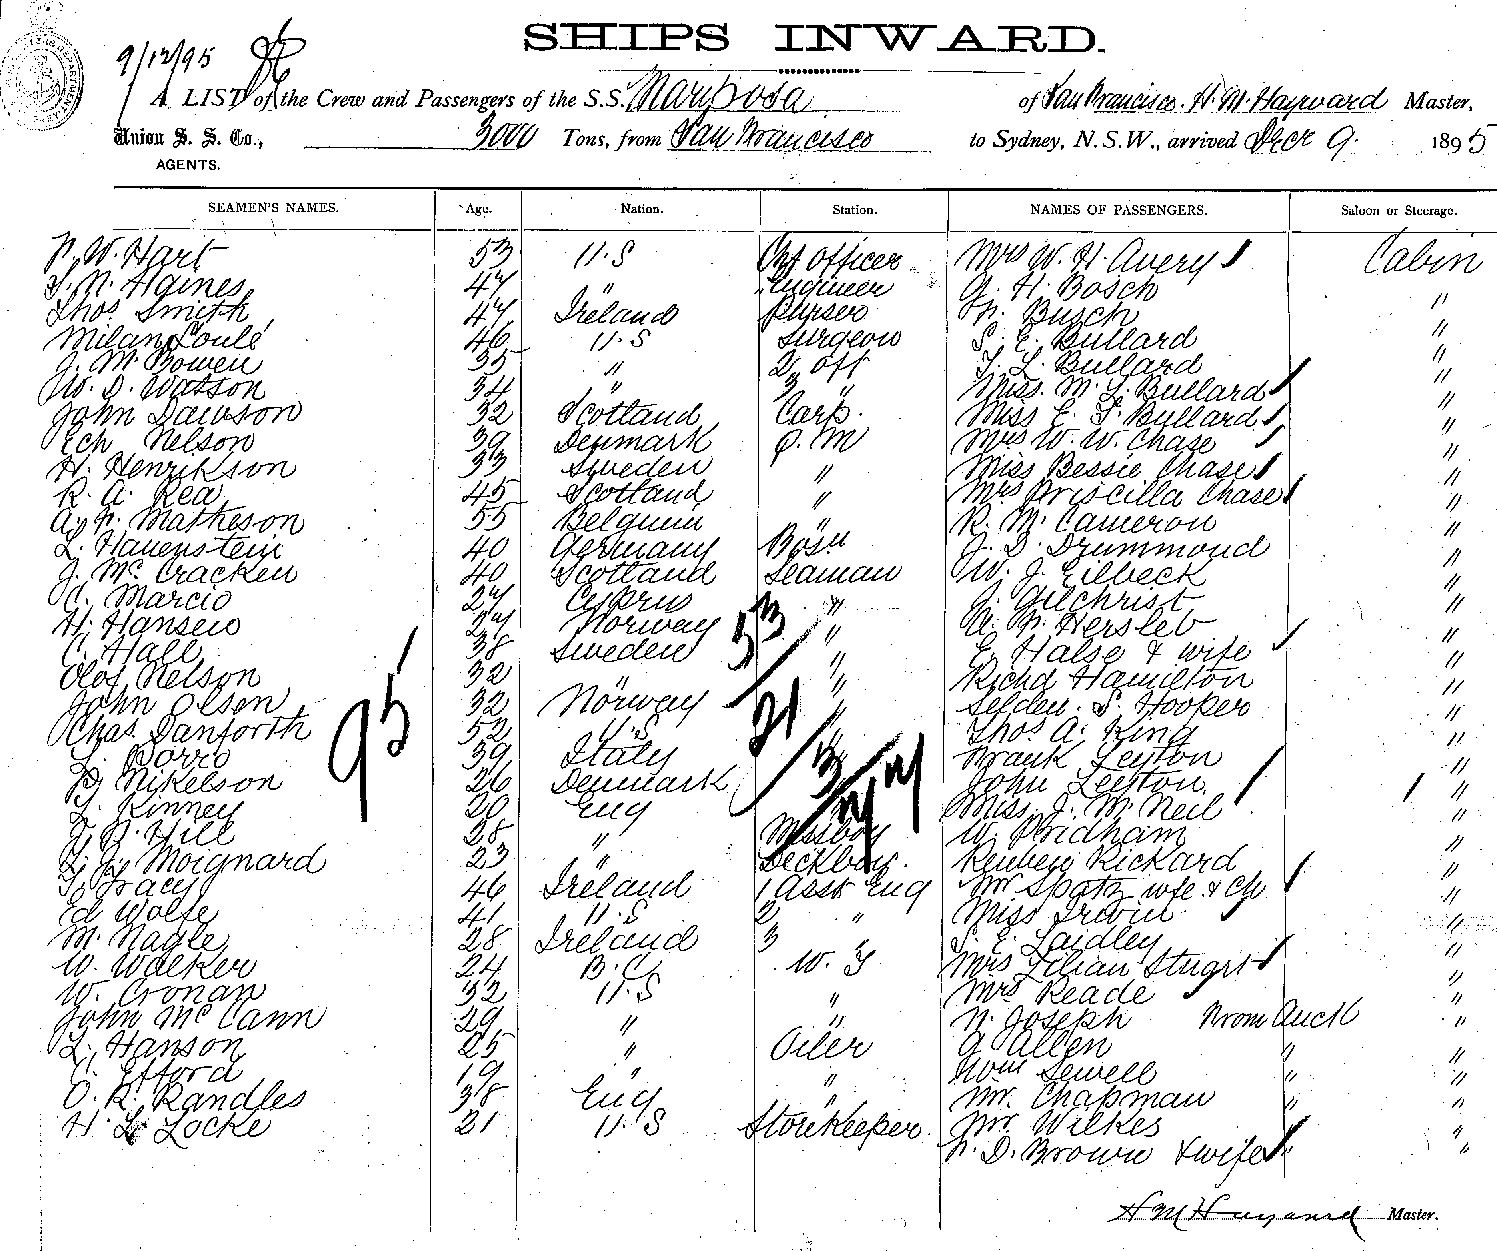 SHIPS INWARD.
9/12/95
A LIST of the Crew and Passengers of the S.S. Mariposa of San Francisco. H. M. Hayward Master,
Union S. S. Co., 3000 Tons, from San Francisco to Sydney, N.S.W., arrived Decr 9. 1895
AGENTS.
SEAMEN'S NAMES. Age. Nation. Station. NAMES OF PASSENGERS. Saloon or Steerage.
W. Hart 53 U.S officer Mrs W. H. Avery Cabin
N. Haines 47 " Engineer G. H. Bosch "
Thos Smith 47 Ireland Purser Busch "
Milan Soulé 46 U.S Surgeon S. E. Bullard "
J. M. Bowen 35 " 2 off F. L. Bullard "
W. D. Watson 34 " 3 " Miss. M. L. Bullard "
John Dawson 32 Scotland Carp. Miss E. S. Bullard "
Nelson 39 Denmark Q. M Mrs W. W. Chase "
H. Henrikson 33 Sweden " Miss Bessie Chase "
R. A. Rea 45 Scotland " Mrs Priscilla Chase "
Matheson 55 Belguim " R. M. Cameron "
L. Hauenstein 40 Germany Bosn J. D. Drummond "
J. Mc Cracken 40 Scotland Seaman W. J. Eilbeck "
C. Marcio 27 Cyprus " J. Gilchrist "
H. Hansen 27 Norway " Hersleb "
C. Hall 38 Sweden " E. Halse & wife "
Olof Nelson 32 " " Richd Hamilton "
John Olsen 32 Norway " Selden. S. Hooper "
Chas Danforth 52 U.S " Thos A. King "
Porro 39 Italy Frank Leyton "
Nikelson 26 Denmark John Leyton "
Kinney 20 Eng Miss. J. McNeil "
Hill 28 " Messboy W. Pridham "
Moignard 23 " Deckboy. Reuben Rickard "
Tracy 46 Ireland 1 Asst Eng Mr Spatz wife & Ch "
Ed Wolfe 41 U.S 2 " Miss Irwin "
M. Nagle 28 Ireland 3 S. E. Laidley "
W. Walker 24 B.C. W. T Mrs Lilian "
W. Cronan 32 U.S " Mrs Reade "
John Mc Cann 29 " " N. Joseph From Auck "
L. Hanson 25 " Oiler G Allen " "
C. Efford 19 " " Wm Sewell " "
O. R. Randles 38 Eng " Mr. Chapman " "
H. L. Locke 21 U.S Storekeeper Mr Wilkes "
D. Brown & wife " "
95
53
21
3
H M Hayward Master.